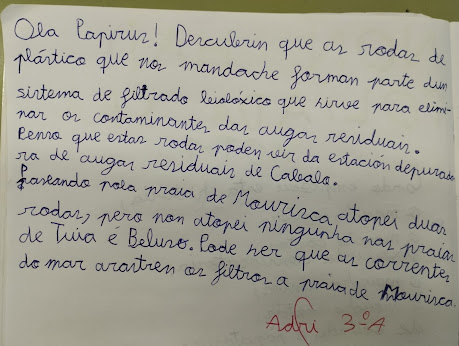 Ola Papirus! Descubrin que as rodas de
plástico que nos mandache forman parte dun
sistema de filtrado biolóxico que sirve para elimi-
nar os contaminantes das augas residuais.
Penso que estas rodas poden vir da estación depurado
ra de augas residuais de Cabalo.
Paseando pola praia de Mourisca atopei duas
rodas, pero non atopei ningunha nas praias
de Tuia é Beluso. Pode ser que as correntes
do mar arastren os filtros a praia de Mourisca.
Adri 3ºA